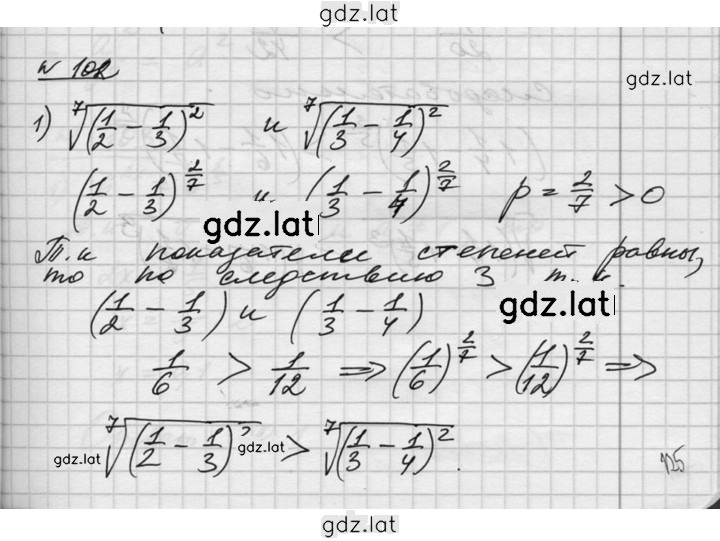 gdz.lat
N 102
gdz.lat
1) ⁷√(1/2 − 1/3)² и ⁷√(1/3 − 1/4)²
(1/2 − 1/3)^(2/7) и (1/3 − 1/4)^(2/7) p = 2/7 > 0
gdz.lat
Т.к показатели степеней равны,
то по следствию 3 т.к.
gdz.lat
(1/2 − 1/3) и (1/3 − 1/4)
1/6 > 1/12 => (1/6)^(2/7) > (1/12)^(2/7) =>
⁷√(1/2 − 1/3)² > ⁷√(1/3 − 1/4)².
gdz.lat
gdz.lat
125
gdz.lat